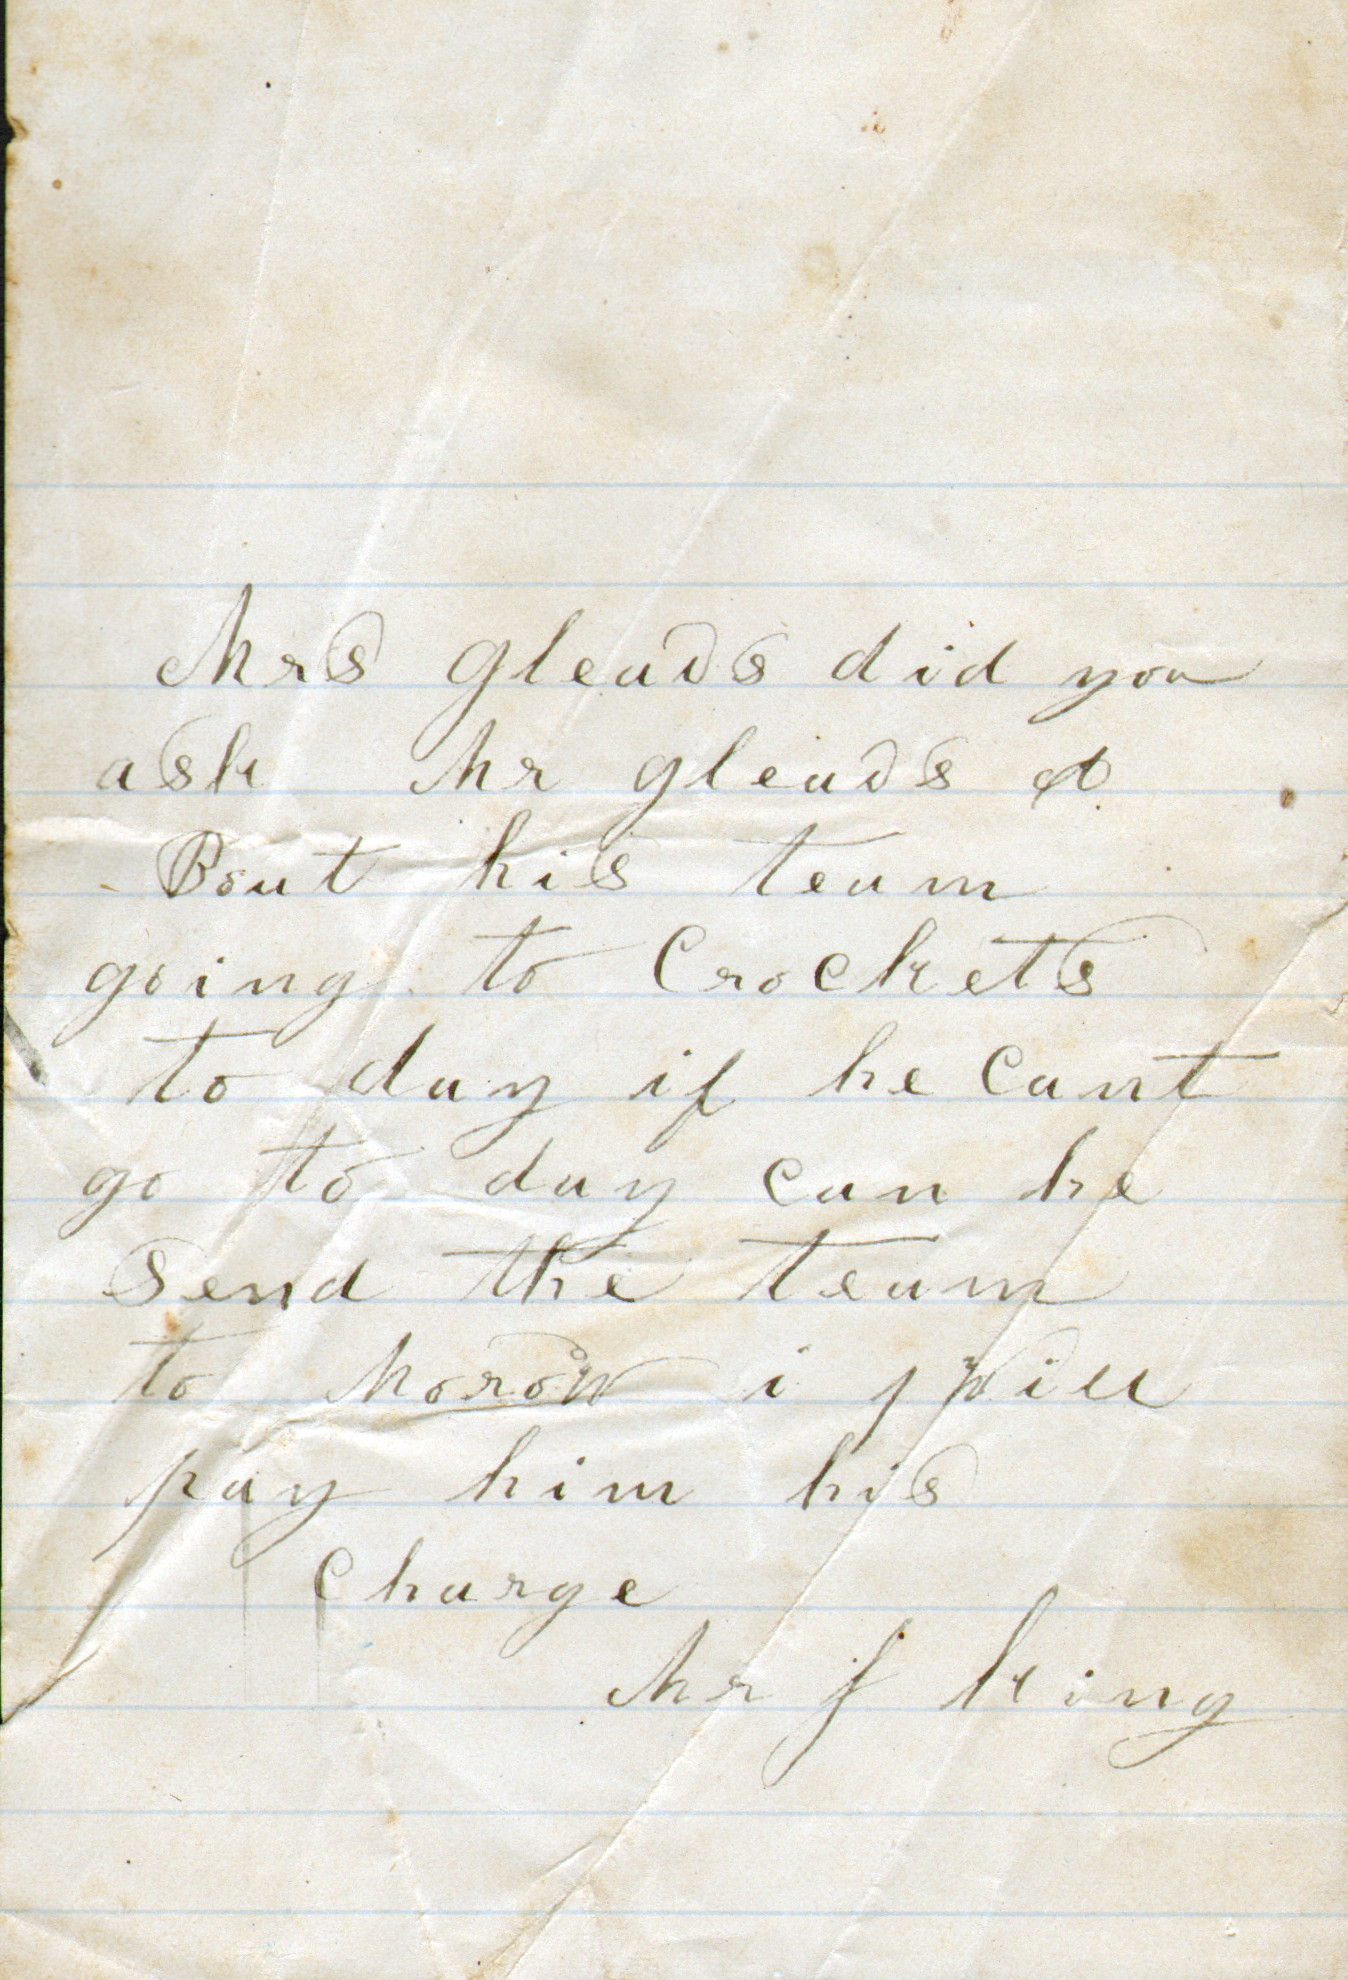 Mrs Gleads did you
ask Mr gleads a
Bout his team
going to Crockets
to day if he cant
go to day can he
Send the team
to Morow i will
pay him his
Charge
Mr J King